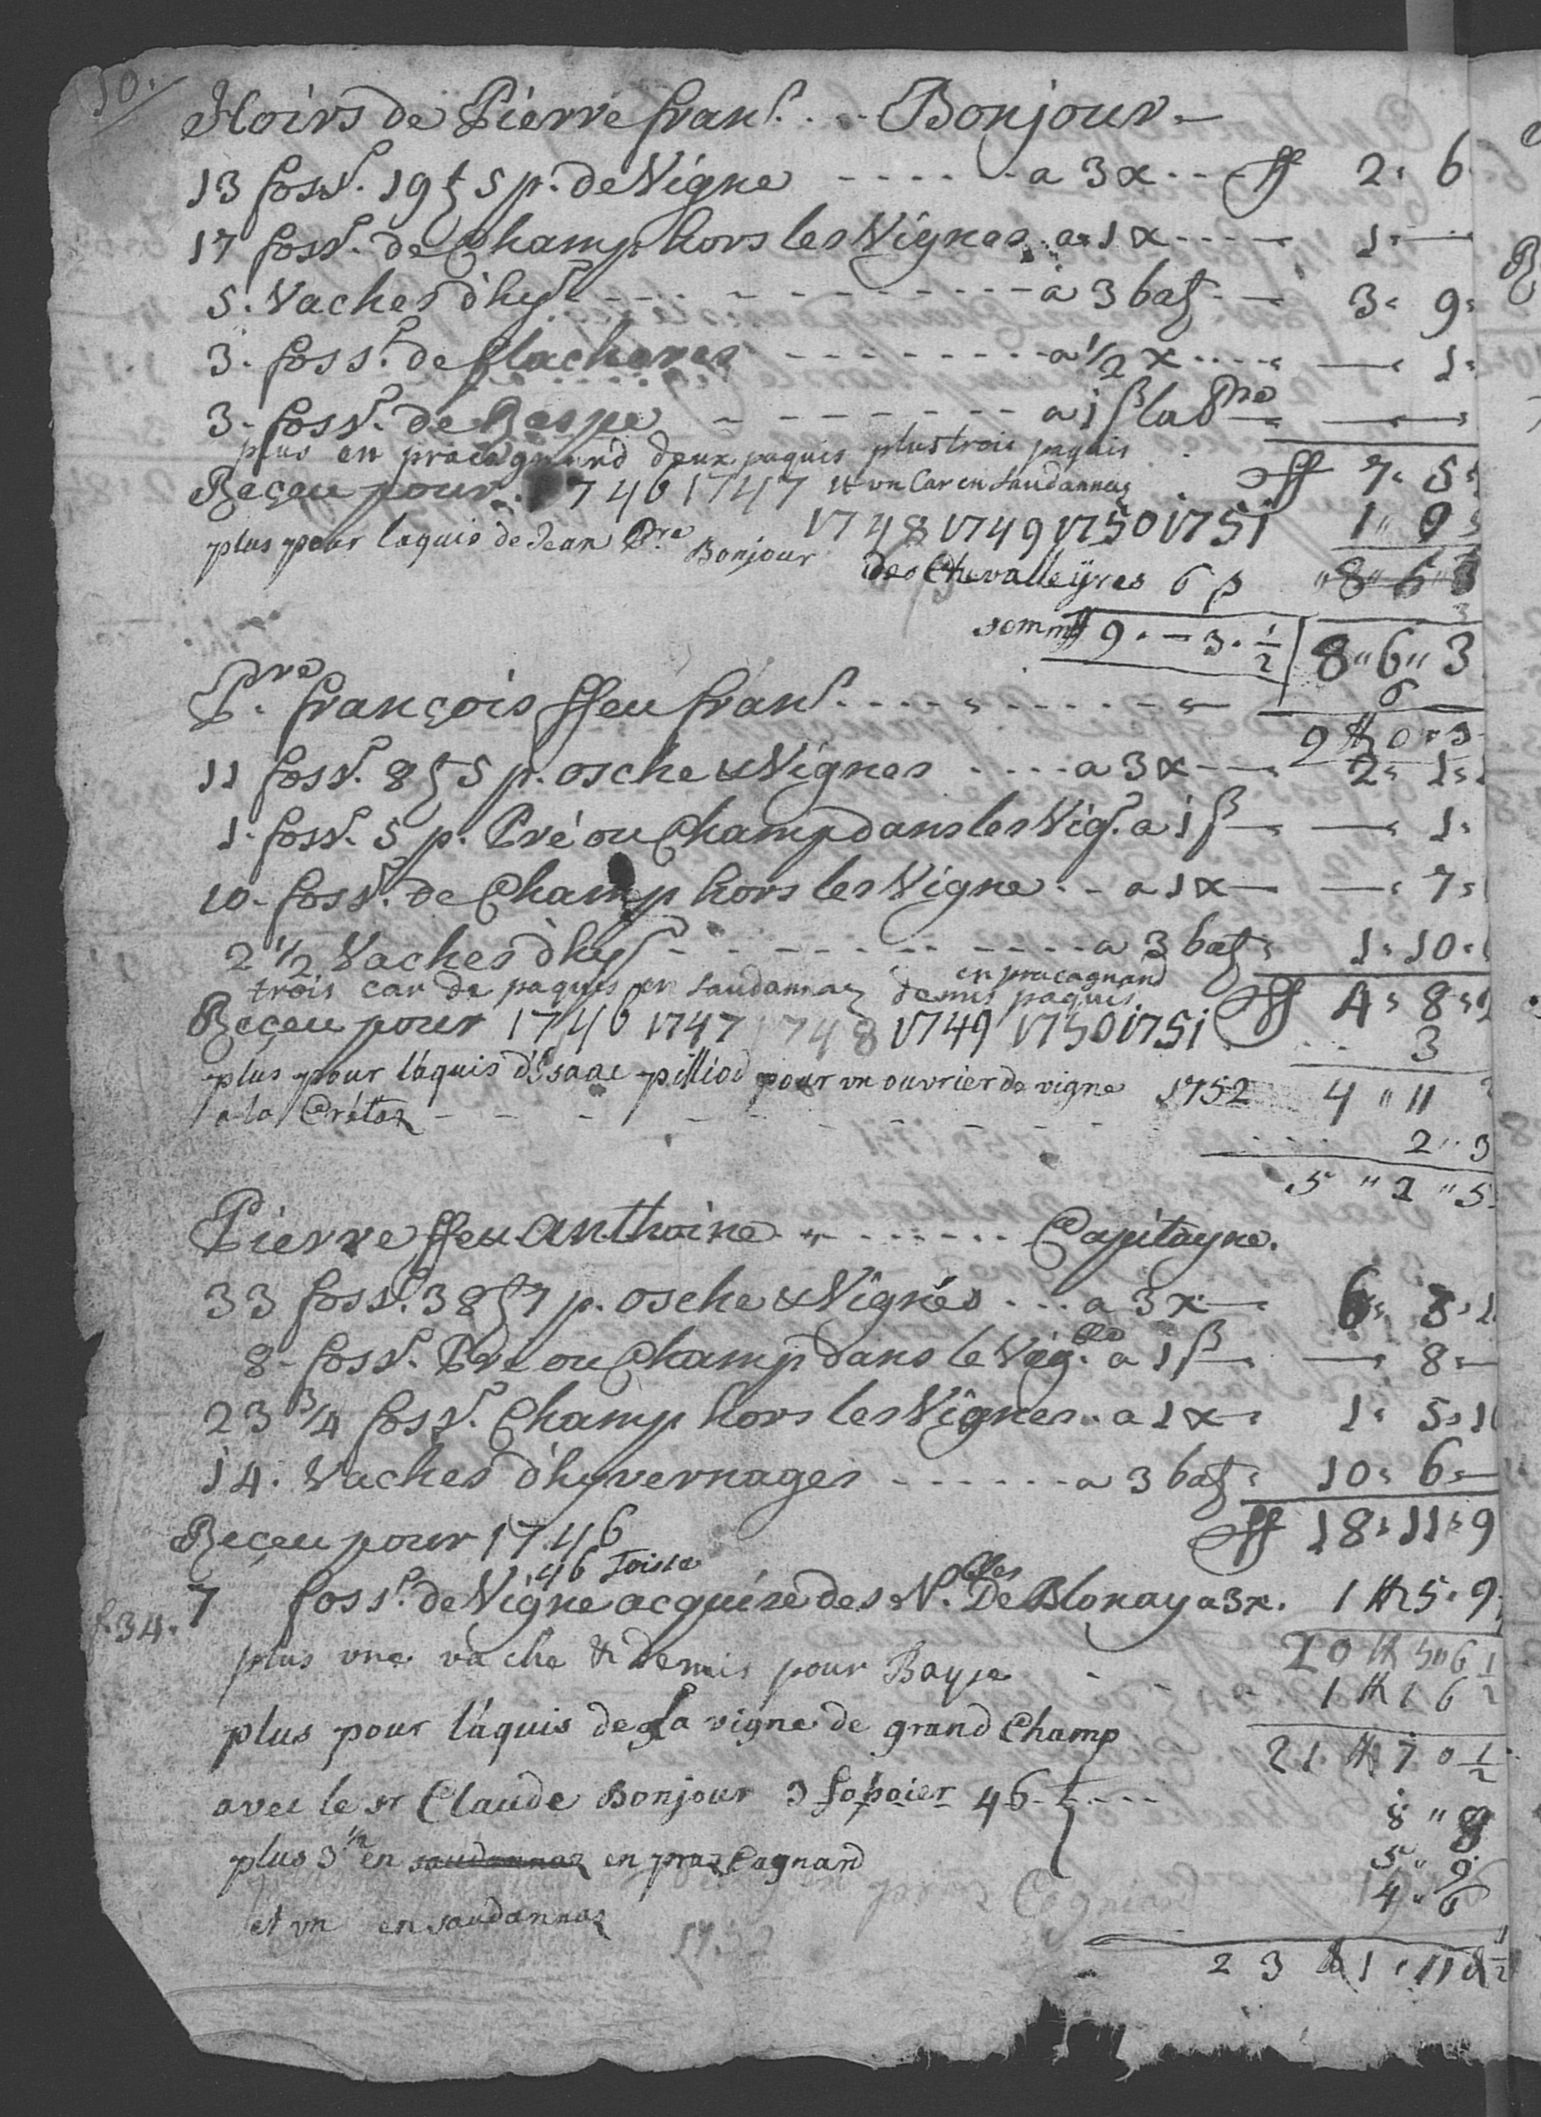 10.
Hoirs de Pierre franç. . . . Bonjour.
13 foss.r 19 t 5 p. de Vigne - - - - - - a 3 x. . . ff 2. 6.
17 foss.r de Champ hors les Vignes a 1 x - - - - 1. —
5. Vaches d'hyr - - - - - - - - - a 3 batz - - 3. 9.
3. foss.r de flacheres - - - - - - - - a 1/2 x . . . . — 1.
3. foss.r de Raspe - - - - - - - a 1 ß la — —
plus en pracagnard deux paquis plus trois paquis
Reçeu pour 1746 1747 et un Car en Saudannaz . ff 7. 5.
1748 1749 1750 1751 1 " 0
plus pour laquis de Jean Pre Bonjour
des Chevalleÿres 6 p " 8 " 6 " 3
somme ff 9. — 3. 1/2 8 " 6 " 3
6
P.re françois ffeu franç. - - - - - - - - -
9 ff 0 " 3
11 foss.r 8 t 5 p. osche & Vignes - - - - a 3 x — 2. 1.
1. foss.r 5 p. Pré ou Champ dans les Vig. a 1 ß — — 1.
10. foss.r de Champ hors les Vigne - - a 1 x — — 7.
2 1/2 Vaches d'hyr - - - - - - - - - a 3 batz. 1. 10.
trois car de paquis en Saudannaz demis paquis en pracagnard
ff 4. 8.
Reçeu pour 1746 1747 1748 1749 1750 1751 . . . 3
plus pour laquis d'Isaac pilliod pour un ouvrier de vigne 1752 4 " 11
a la Crétaz - - - - - - - - - - -
2 " 3
5 " 2 " 5
Pierre ffeu Anthoine - - - - - - Capitayne.
33 foss.r 38 t 7 p. osche & Vignes . . . a 3 x — 6. 8.
8. foss.r Pré ou Champ dans le Vig.ble a 1 ß — — 8. —
23 3/4 foss.r Champ hors les Vignes . . a 1 x . 1. 5. 1
14. Vaches d'hyvernages - - - - - - a 3 batz. 10. 6. —
Reçeu pour 1746 ff 18. 11. 9
46 Toise
f. 34. 7 foss.r de Vigne acquise des N.bles De Blonay a 3 x. 1 ff 5. 9
20 ff 5 " 6 1/2
plus une vache & demis pour Baype - - - 1 ff 1 6
plus pour l'aquis de la vigne de grand Champ
21 ff 7 0 1/2
avec le sr Claude Bonjour 3 fosoier 46 t - - - 8 " 8
plus 3 1/2 en saudannaz en praz Cagnard 5 " 9
en praz Cagniard 4 " 6
et un en saudannaz
1752
23 ff 1 " 11 & 1/2